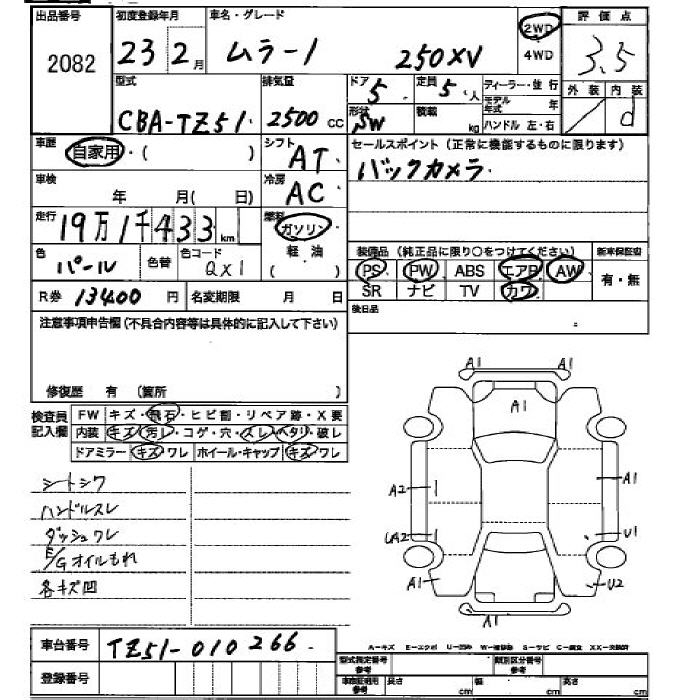 出品番号 初度登録年月 車名・グレード 評価点
2082 23 2月 ムラーノ 250XV 2WD 3.5
4WD
型式 排気量 ドア 定員 ディーラー・並行 外装 内装
CBA-TZ51 2500 CC 5 5人 モデル年式 年
形状 積載 d
SW kg ハンドル 左・右
車歴 自家用・( ) シフト AT セールスポイント(正常に機能するものに限ります)
バックカメラ
車検 年 月(日) 冷房 AC
走行 19万1千433km 燃料 ガソリン
軽油
( )
装備品(純正品に限り○をつけてください) 新車保証書
色 パール 色替 色コード QX1 PS PW ABS エアB AW 有・無
SR ナビ TV カワ
R券 13400 円 名変期限 月 日 後日品
注意事項申告欄(不具合内容等は具体的に記入して下さい)
修復歴 有 (箇所 )
検査員記入欄 FW キズ・飛石・ヒビ割・リペア跡・X要
内装 キズ・汚レ・コゲ・穴・スレ・ヘタリ・破レ
ドアミラー キズ・ワレ ホイール・キャップ キズ・ワレ
シートシワ
ハンドルスレ
ダッシュワレ
E/Gオイルもれ
各キズ凹
A1 A1
A1
A2 A1
UA2 U1
A1 U2
A1
車台番号 TZ51-010266
A-キズ E-エクボ U-凹み W-補修跡 S-サビ C-腐食 XX-交換済
登録番号 型式指定番号 参考 類別区分番号 参考
車庫証明用 参考 長さ cm 幅 cm 高さ cm